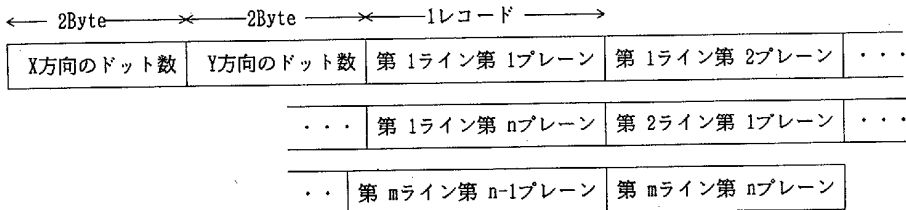 2Byte 2Byte 1レコード
X方向のドット数 Y方向のドット数 第 1ライン第 1プレーン 第 1ライン第 2プレーン ・・・
・・・ 第 1ライン第 nプレーン 第 2ライン第 1プレーン ・・・
・・ 第 mライン第 n-1プレーン 第 mライン第 nプレーン